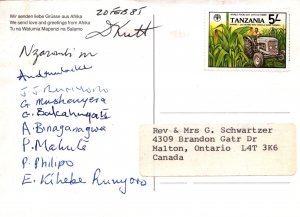 Wir senden liebe Grüsse aus Afrika
We send love and greetings from Afrika
Tu na Watumia Mapenzi na Salamu
20 FEB 85
TANZANIA
5/-
J. J. Rumyoro
G. Mushenyera
G. Bakahuga
A. Binagaragwa
P. Makule
P. Philipo
E. Kiheke Rumyoro
Rev & Mrs G. Schwartzer
4309 Brandon Gatr Dr
Malton, Ontario L4T 3K6
Canada